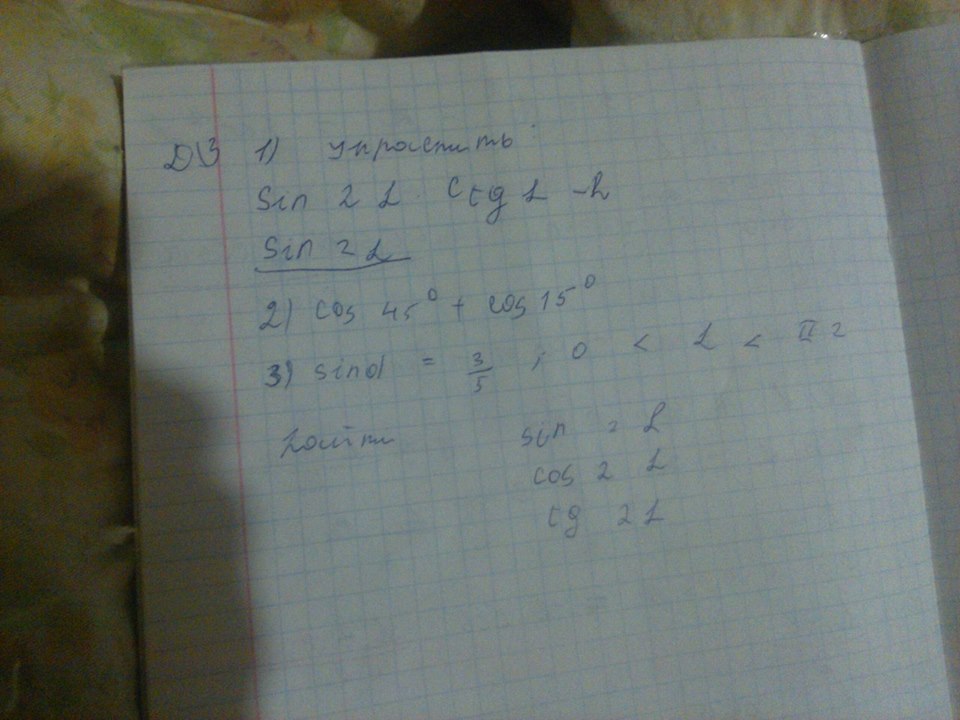 ДЗ 1) упростить
Sin 2 L · Ctg L -
Sin 2 L
2) cos 45° + cos 15°
3) sin α = 3/5 ; 0 < L < π 2
найти sin 2 L
cos 2 L
tg 2 L